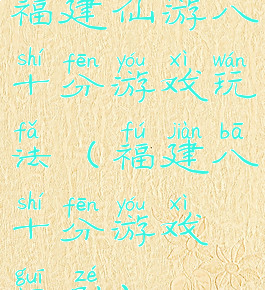 福建仙游八
shí fēn yóu xì wán
十分游戏玩
fǎ fú jiàn bā
法（福建八
shí fēn yóu xì
十分游戏
guī zé